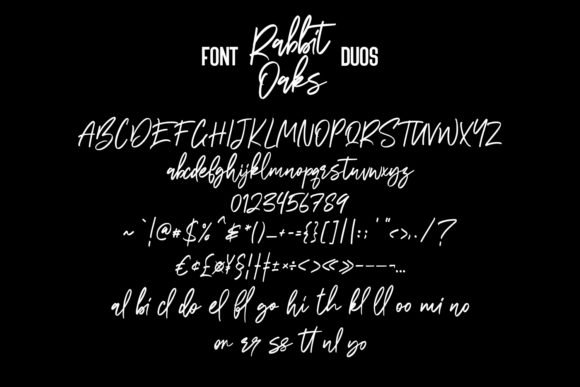 FONT Rabbit DUOS
Oaks
ABCDEFGHIJKLMNOPQRSTUVWXYZ
abcdefghijklmnopqrstuvwxyz
0123456789
~`!@#$%^&*()_+-={}[]|:;'"<>,./?
€¢£¤¥§¦†‡±×÷<>«»—–-¬…
al bi cl do el fl go hi th kl ll oo mi no
on rr ss tt ul yo